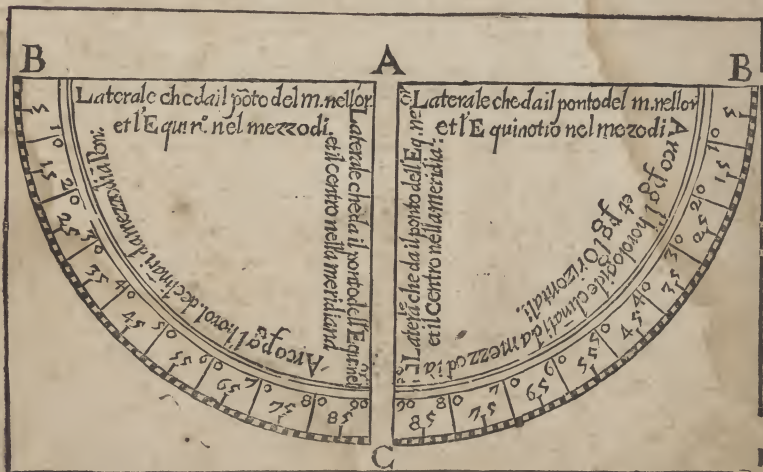 B A B
Laterale che da il pōto del m. nell or
et l'Equir.º nel mezzodi.
Laterale che da il ponto dell'Equi: nel
et il Centro nella meridiana
Arco p gl'horol. declinati. da mezzodi
5 10 15 20 25 30 35 40 45 50 55 60 65 70 75 80 85 90
Laterale che da il ponto del m. nell or
et l'Equinotio nel mezodi.
Laterale che da il ponto dell'Eq. ne
et il Centro nella meridia:
Arco p gl'horologi declinati da mezzodi
et p gl'Orizontali.
5 10 15 20 25 30 35 40 45 50 55 60 65 70 75 80 85 90
C